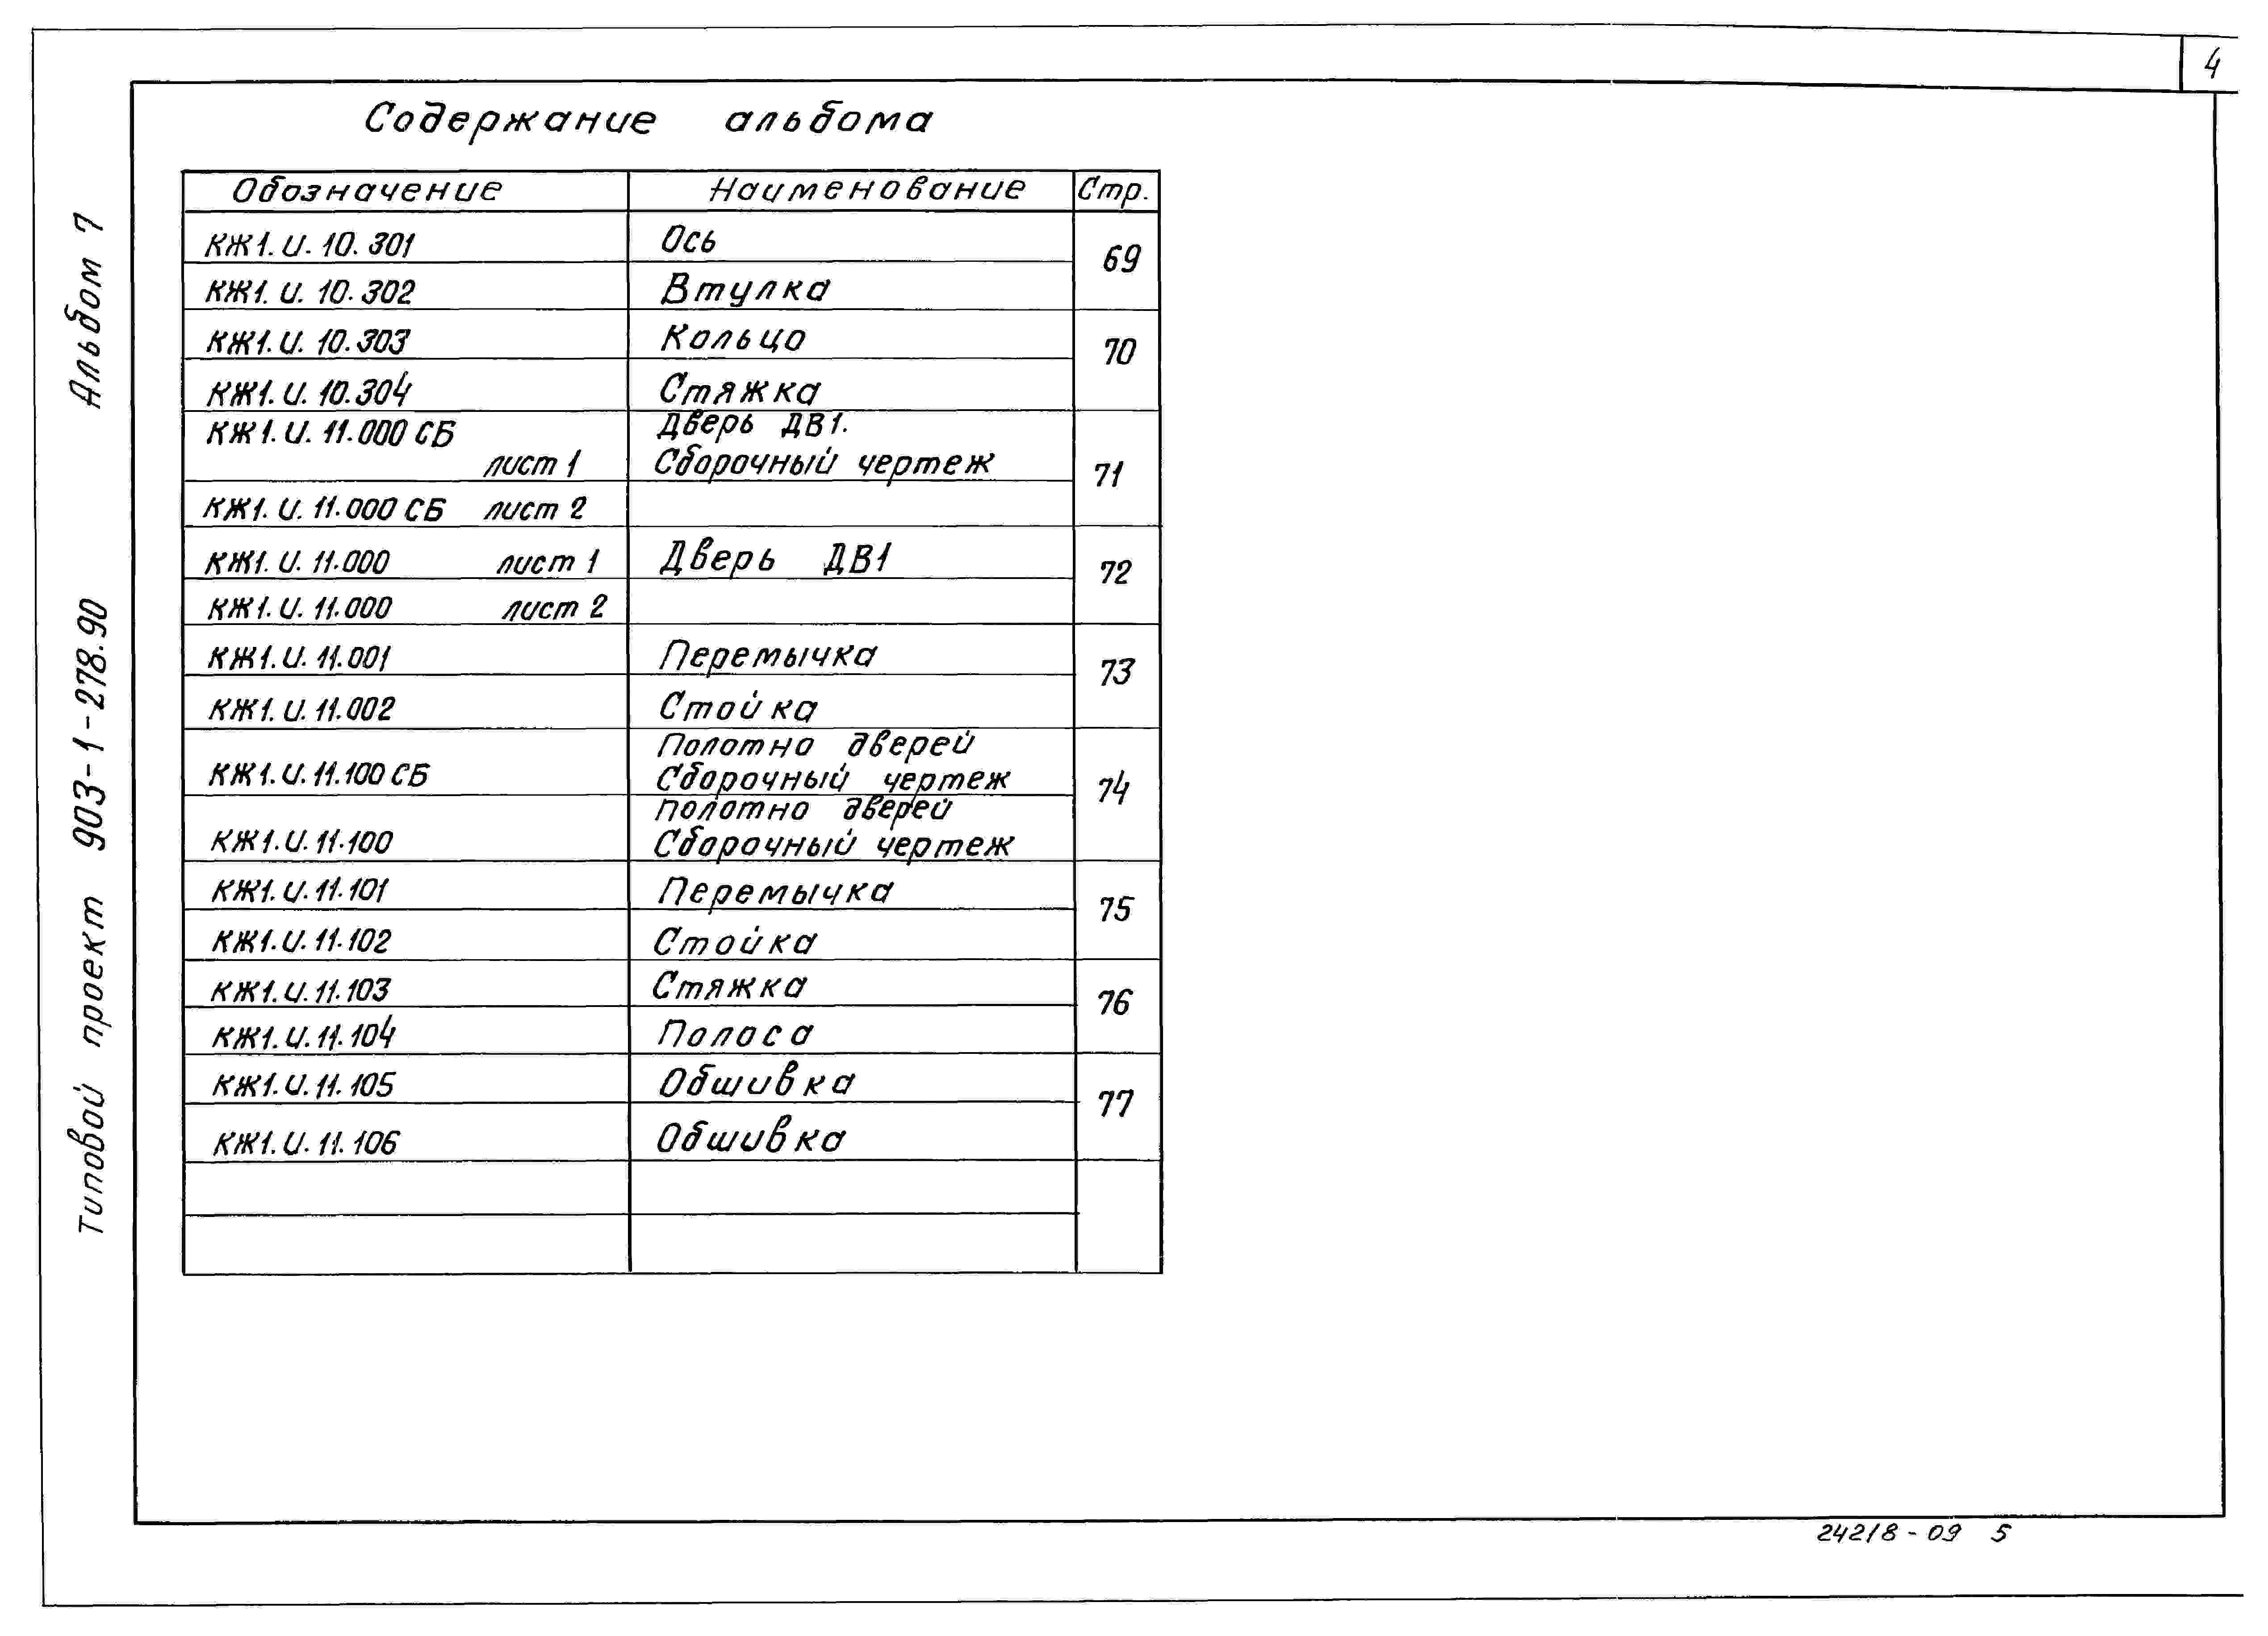 4
Содержание альбома
Обозначение Наименование Стр.
КЖ1.И.10.301 Ось 69
КЖ1.И.10.302 Втулка
КЖ1.И.10.303 Кольцо 70
КЖ1.И.10.304 Стяжка
КЖ1.И.11.000 СБ Дверь ДВ1.
лист 1 Сборочный чертеж 71
КЖ1.И.11.000 СБ лист 2
КЖ1.И.11.000 лист 1 Дверь ДВ1 72
КЖ1.И.11.000 лист 2
КЖ1.И.11.001 Перемычка 73
КЖ1.И.11.002 Стойка
Полотно дверей
КЖ1.И.11.100 СБ Сборочный чертеж 74
Полотно дверей
КЖ1.И.11.100 Сборочный чертеж
КЖ1.И.11.101 Перемычка 75
КЖ1.И.11.102 Стойка
КЖ1.И.11.103 Стяжка 76
КЖ1.И.11.104 Полоса
КЖ1.И.11.105 Обшивка 77
КЖ1.И.11.106 Обшивка
Типовой проект 903-1-278.90 Альбом 7
24218-09 5